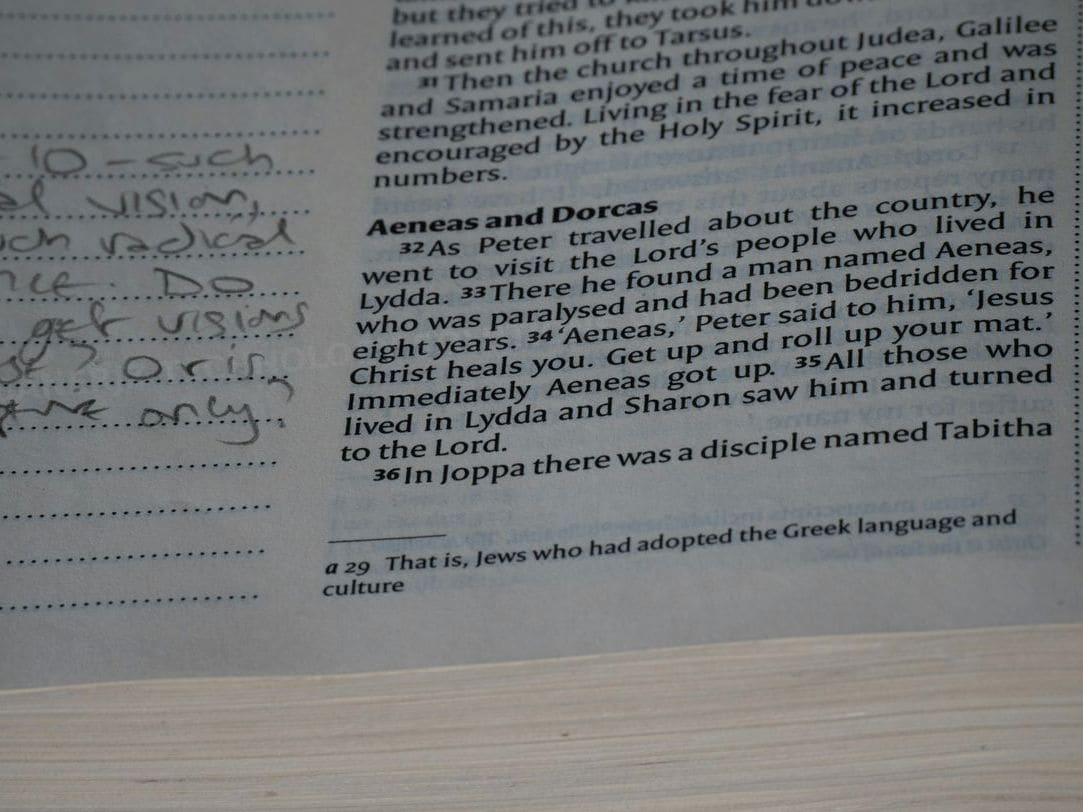 10 - such
vision,
radical
Do
get visions
? Or is
only?
but they tried to
learned of this, they took him
and sent him off to Tarsus.
31 Then the church throughout Judea, Galilee
and Samaria enjoyed a time of peace and was
strengthened. Living in the fear of the Lord and
encouraged by the Holy Spirit, it increased in
numbers.
Aeneas and Dorcas
32 As Peter travelled about the country, he
went to visit the Lord’s people who lived in
Lydda. 33 There he found a man named Aeneas,
who was paralysed and had been bedridden for
eight years. 34 ‘Aeneas,’ Peter said to him, ‘Jesus
Christ heals you. Get up and roll up your mat.’
Immediately Aeneas got up. 35 All those who
lived in Lydda and Sharon saw him and turned
to the Lord.
36 In Joppa there was a disciple named Tabitha
a 29 That is, Jews who had adopted the Greek language and
culture